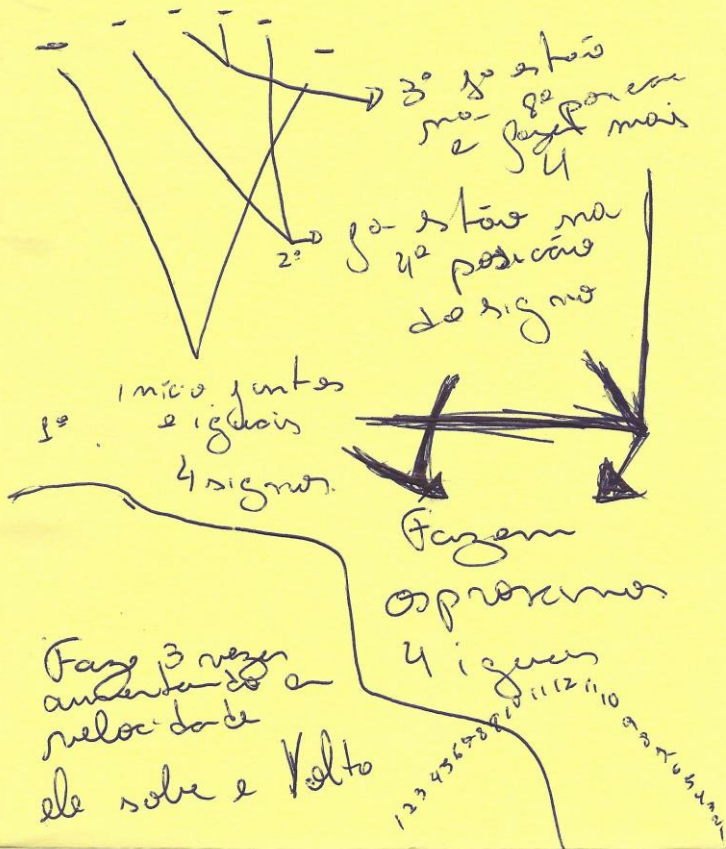 3º jº estão
na 8ª posição
e fazem mais
4
2º jº estão na
4ª posição
do signo
1º início juntos
e iguais
4 signos.
Fazem
os proximos
4 iguais
Faze 3 vezes
aumentando a
velocidade
ele sobe e Volta
1 2 3 4 5 6 7 8 9 10 11 12 11 10 9 8 7 6 5 4 3 2 1